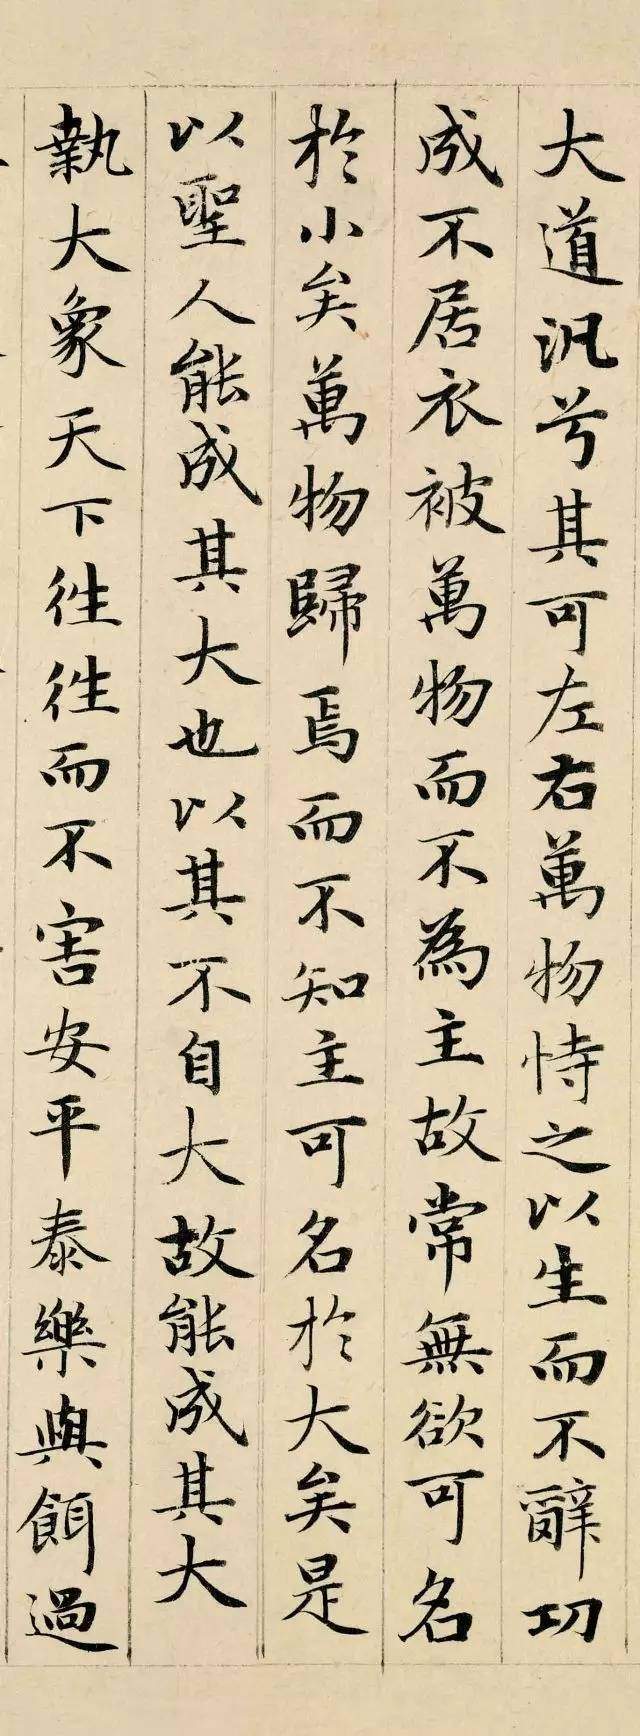 大道汎兮其可左右萬物恃之以生而不辭功
成不居衣被萬物而不為主故常無欲可名
於小矣萬物歸焉而不知主可名於大矣是
以聖人能成其大也以其不自大故能成其大
執大象天下往往而不害安平泰樂與餌過